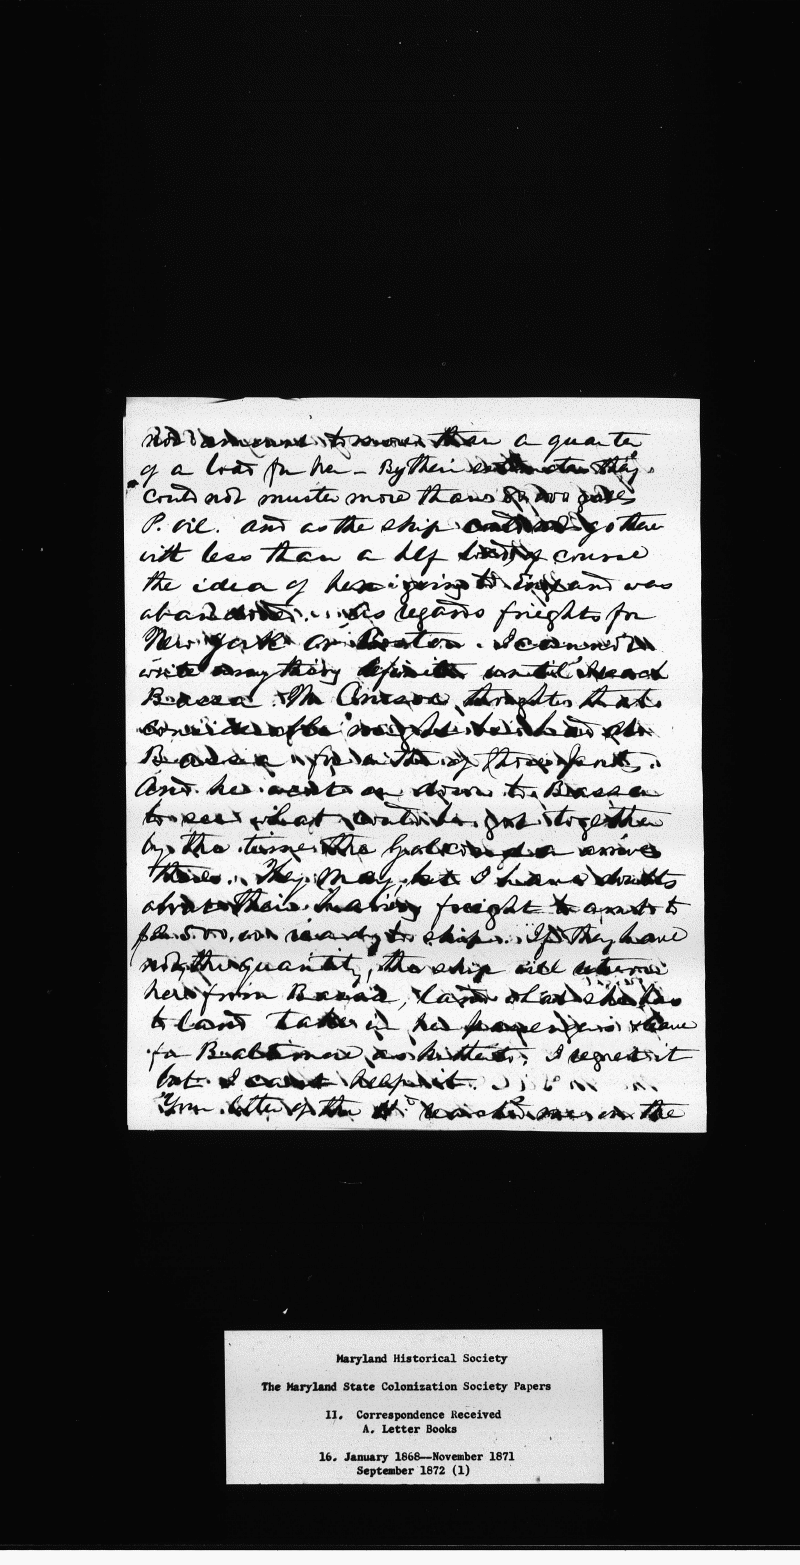 not amount to more than a quarter
of a load for her - By their estimation they
could not muster more than galls
P. Oil. and as the ship could not go there
with less than a half load of course
the idea of her going to England was
abandoned. As regards freights for
New York or Boston. I cannot
write anything definite until I reach
Bassa. Mr thought that
considerable might be had at
Bassa for a
And he went on down to Bassa
to see what could be got together
by the time the Golconda arrives
there. They may, but I have doubts
about their having freight to amt to
ready to ship. If they have
not the quantity, the ship will return
here from Bassa, land what she has
to land take in her passengers & leave
for Baltimore I regret it
but I cannot help it.
Your letter of the reached me on the
Maryland Historical Society
The Maryland State Colonization Society Papers
II. Correspondence Received
A. Letter Books
16. January 1868--November 1871
September 1872 (1)